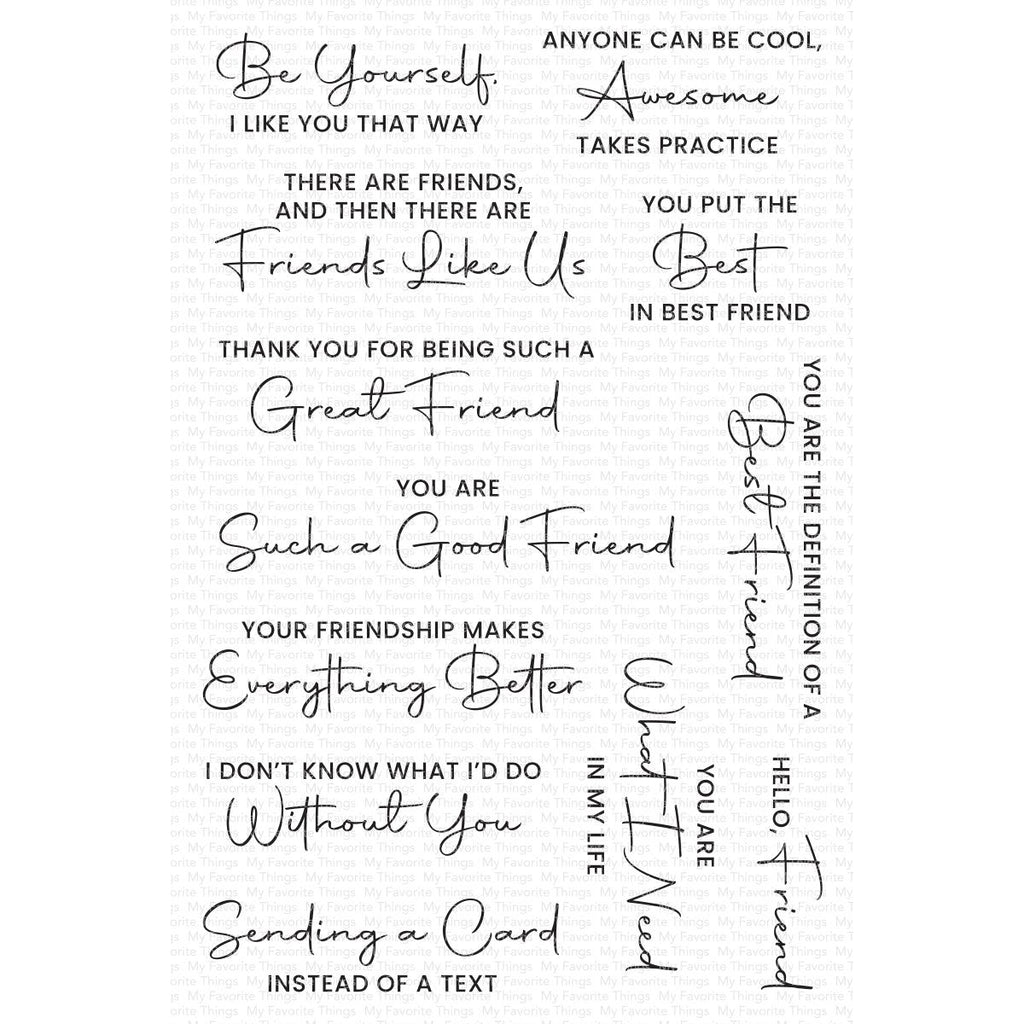 Be Yourself.
I LIKE YOU THAT WAY
ANYONE CAN BE COOL,
Awesome
TAKES PRACTICE
THERE ARE FRIENDS,
AND THEN THERE ARE
Friends Like Us
YOU PUT THE
Best
IN BEST FRIEND
THANK YOU FOR BEING SUCH A
Great Friend
YOU ARE THE DEFINITION OF A
Best Friend
YOU ARE
Such a Good Friend
YOUR FRIENDSHIP MAKES
Everything Better
YOU ARE
What I Need
IN MY LIFE
HELLO,
Friend
I DON'T KNOW WHAT I'D DO
Without You
Sending a Card
INSTEAD OF A TEXT
My Favorite Things